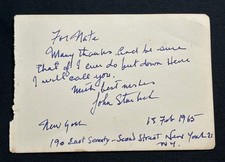 For Nate
Many thanks and be sure
that if I ever do put down Here
I will call you.
Much best wishes
John Steinbeck
New York 15 Feb 1965
190 East Seventy-Second Street New York 21
N.Y.